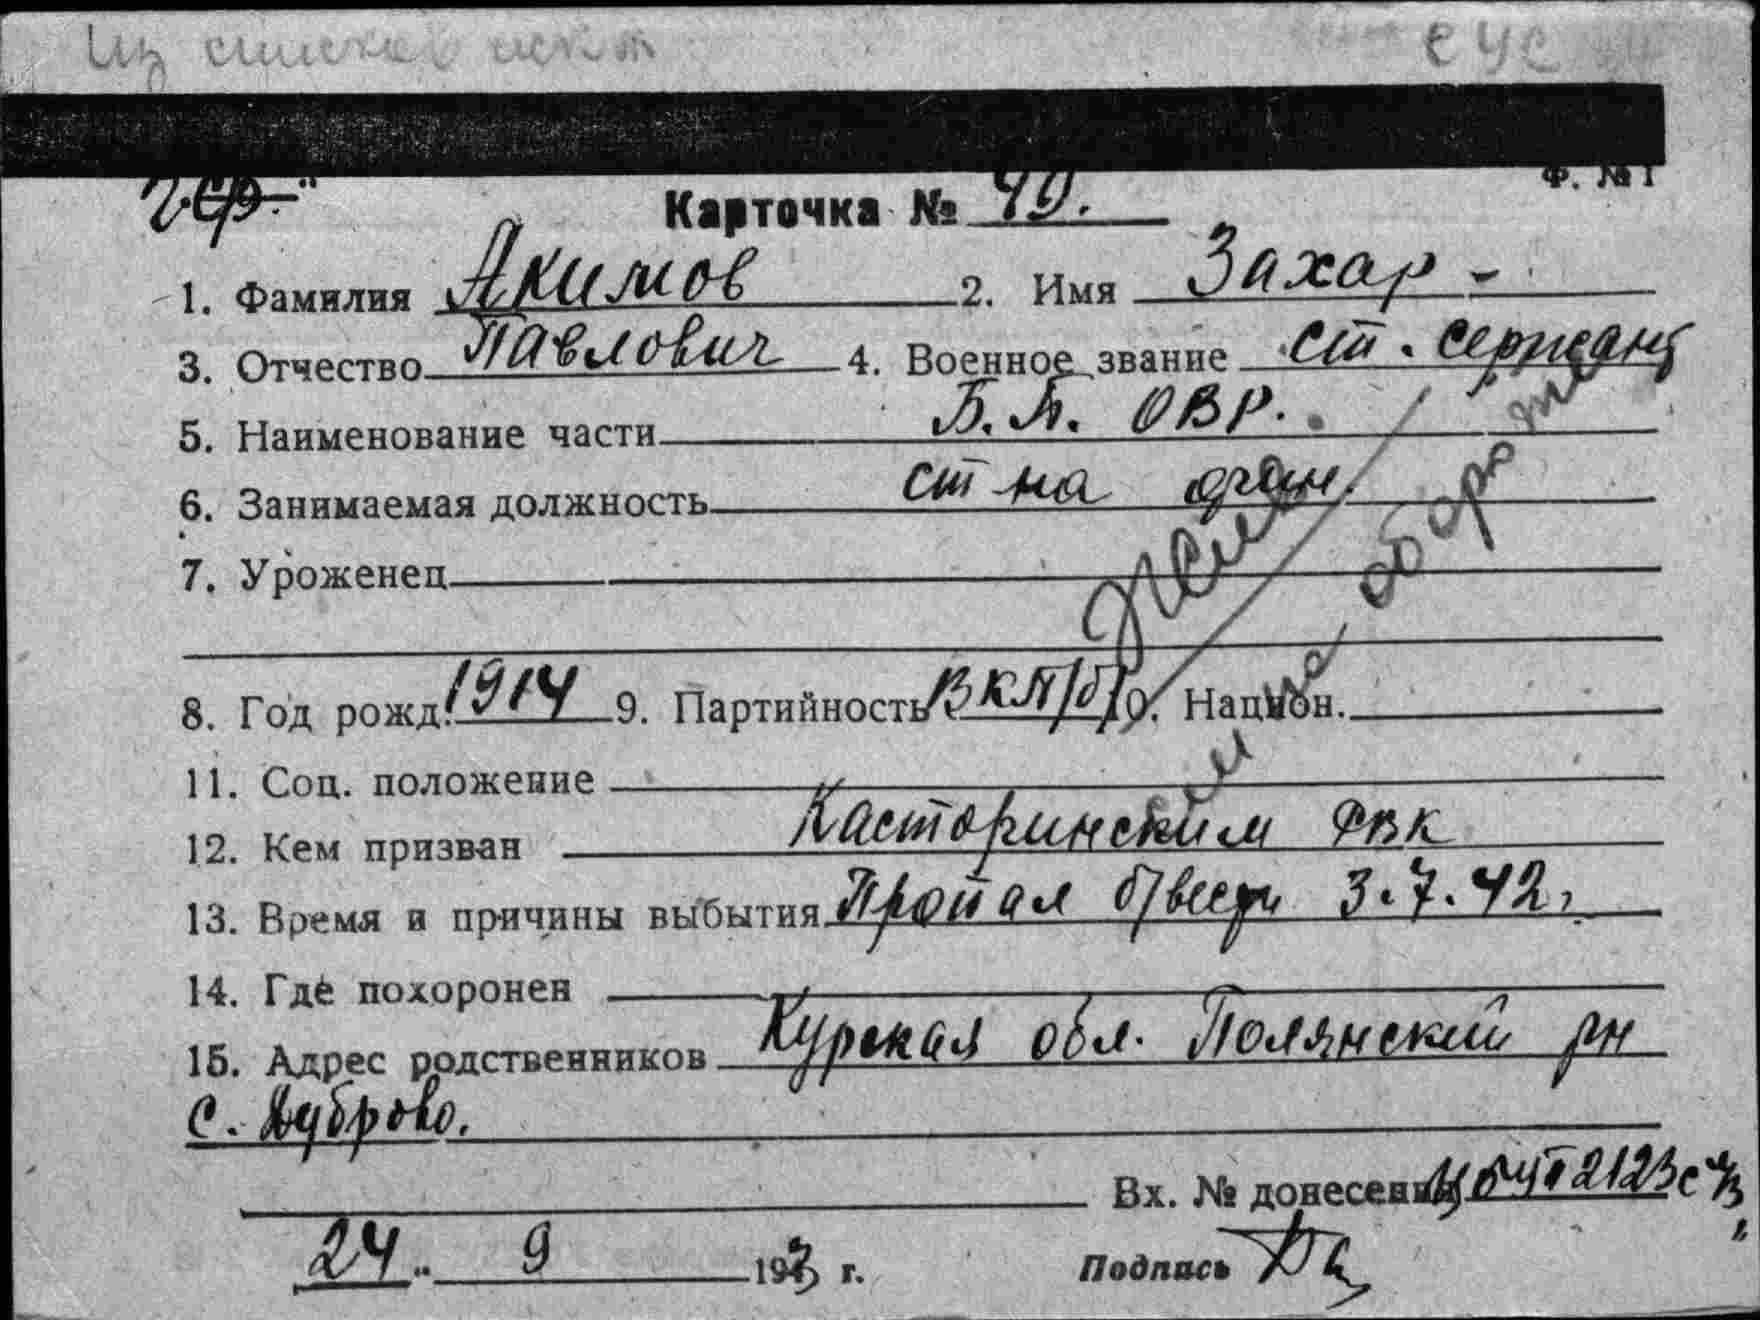 Из списков искл
СУС
Ф. № 1
Карточка № 49.
1. Фамилия Акимов 2. Имя Захар -
3. Отчество Павлович 4. Военное звание ст. сержант
5. Наименование части Б.П. ОВР.
6. Занимаемая должность ст-на
7. Уроженец
8. Год рожд. 1914 9. Партийность ВКП/б/ 10. Национ.
11. Соц. положение
12. Кем призван Касторинским РВК
13. Время и причины выбытия Пропал б/вести 3.7.42г
14. Где похоронен
15. Адрес родственников Курская обл. Полянский рн
с. Дуброво.
Вх. № донесения 2123с
24 " 9 1943 г. Подпись
на обороте